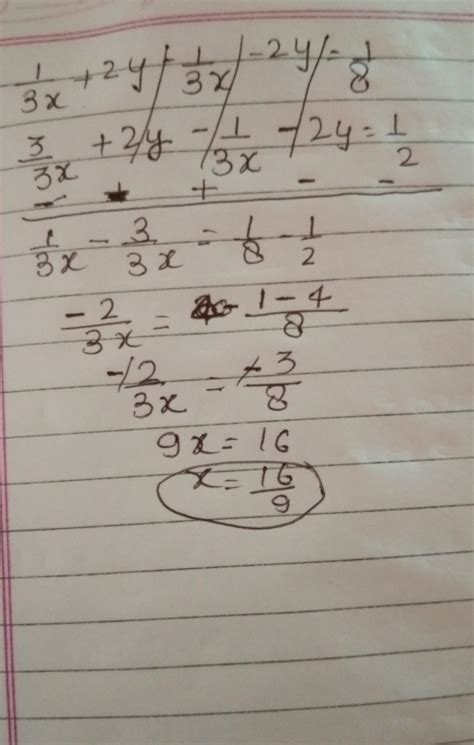 1/3x + 2y - 1/3x - 2y = 1/8
3/3x + 2y - 1/3x - 2y = 1/2
- + + - -
1/3x - 3/3x = 1/8 - 1/2
-2/3x = 1-4/8
-2/3x = -3/8
9x = 16
x = 16/9